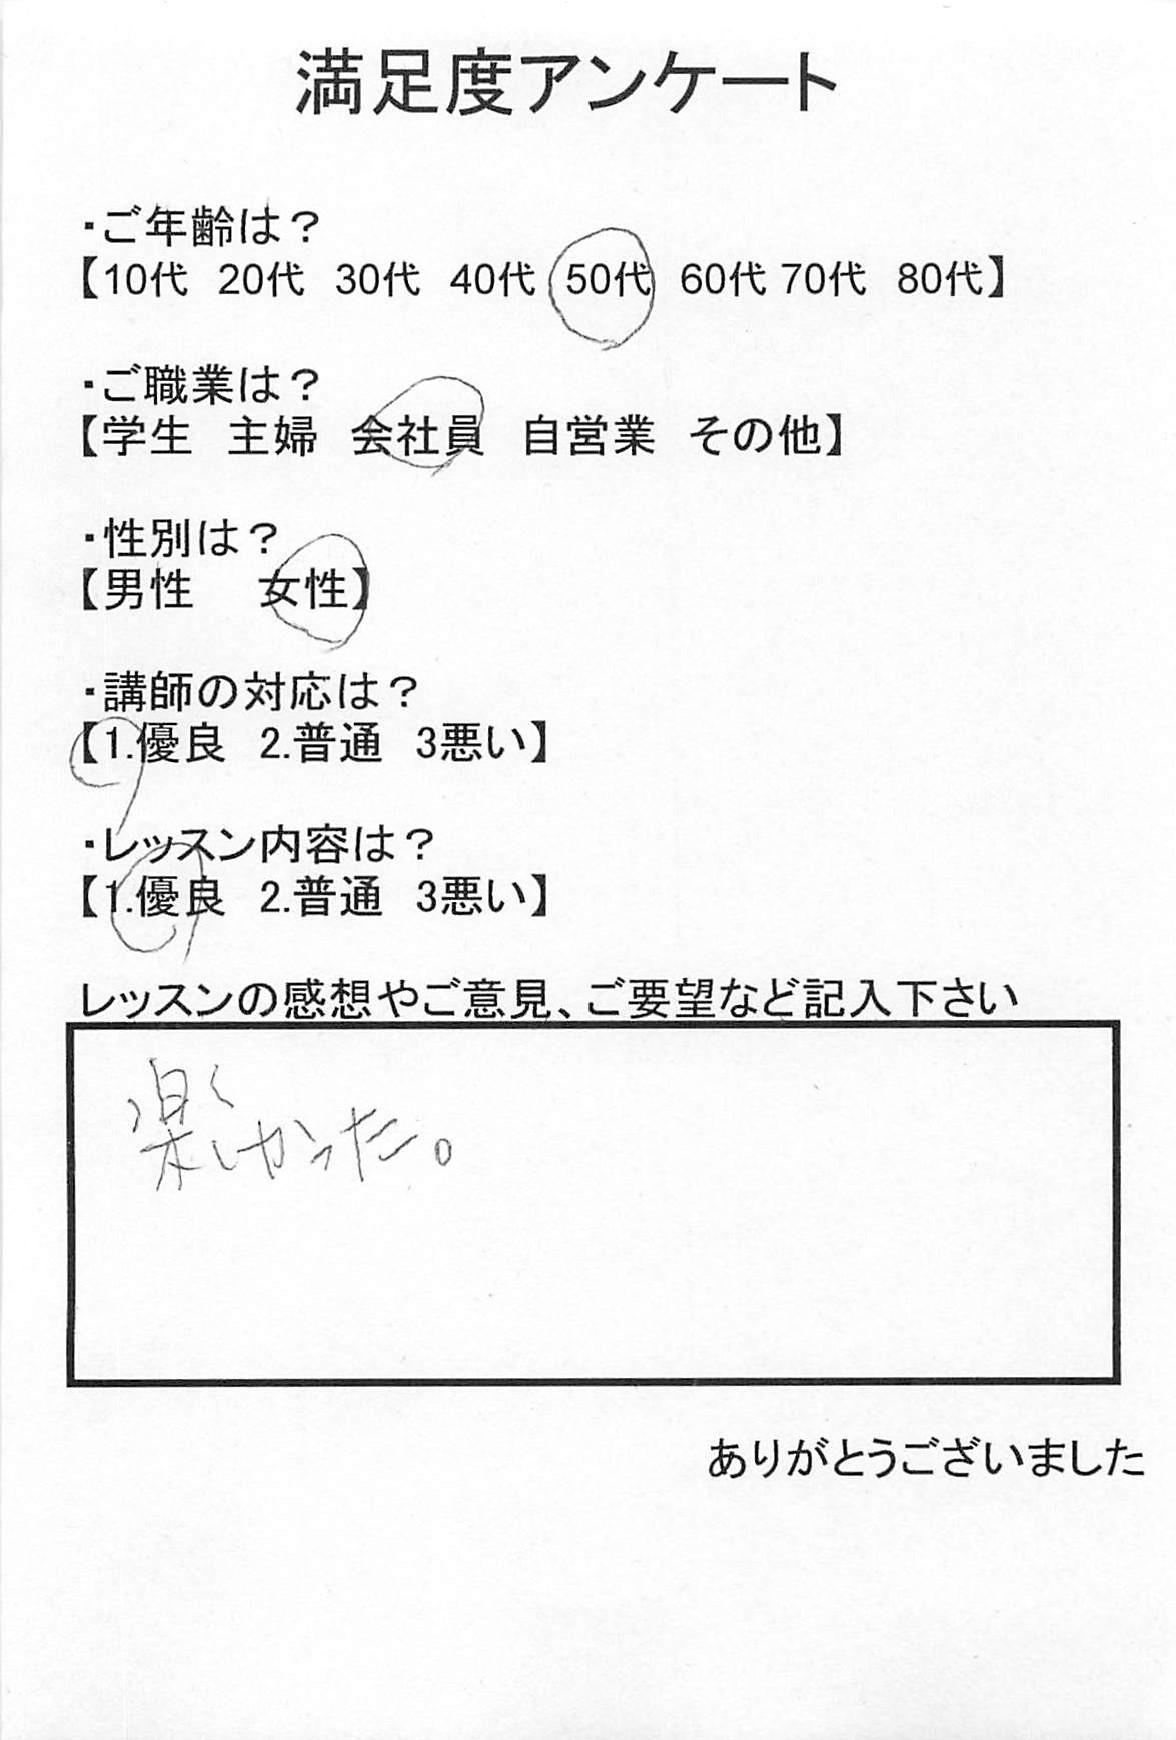 満足度アンケート
・ご年齢は？
【10代 20代 30代 40代 50代 60代 70代 80代】
・ご職業は？
【学生 主婦 会社員 自営業 その他】
・性別は？
【男性 女性】
・講師の対応は？
【1.優良 2.普通 3悪い】
・レッスン内容は？
【1.優良 2.普通 3悪い】
レッスンの感想やご意見、ご要望など記入下さい
楽しかった。
ありがとうございました